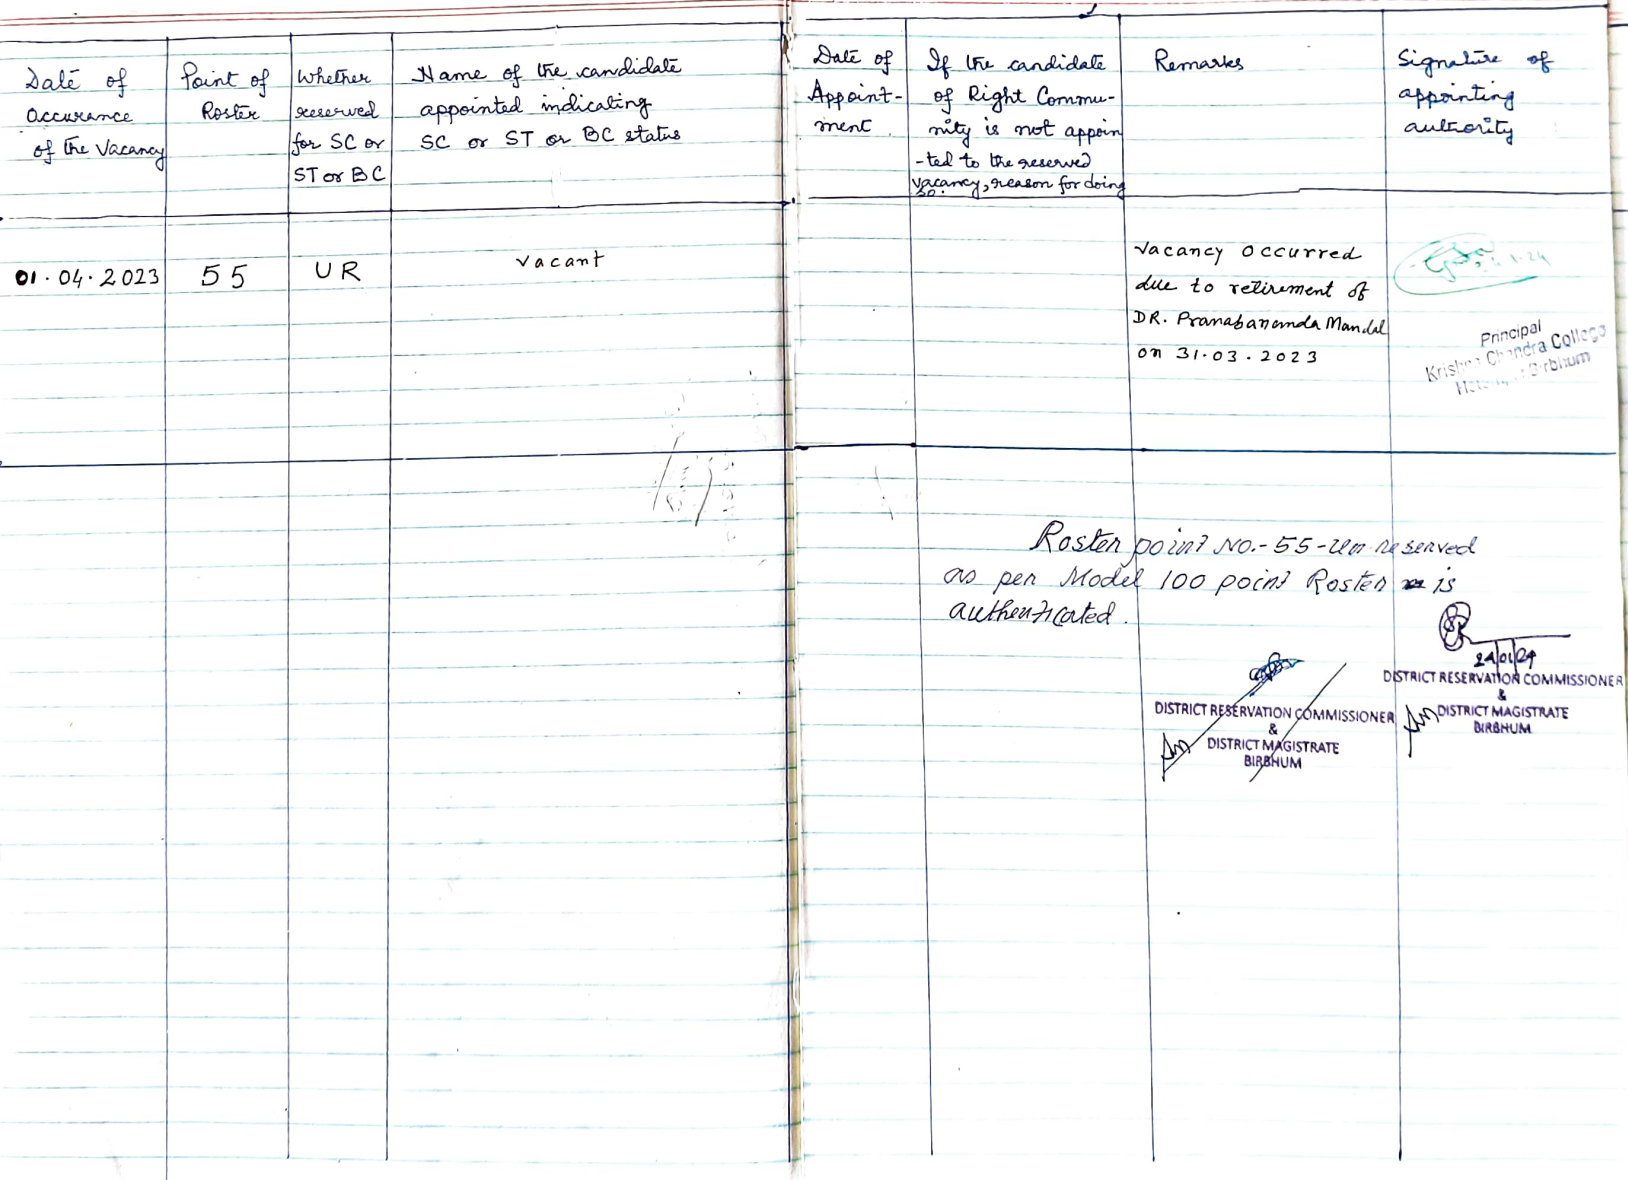 Date of
Occurance
of the Vacancy
Point of
Roster
Whether
reserved
for SC or
ST or BC
Name of the candidate
appointed indicating
SC or ST or BC status
Date of
Appoint-
ment
If the candidate
of Right Commu-
nity is not appoin
-ted to the reserved
vacancy, reason for doing
so.
Remarks
Signature of
appointing
authority
01.04.2023
55
UR
vacant
vacancy occurred
due to retirement of
DR. Pranabananda Mandal
on 31.03.2023
Principal
Krishna Chandra College
Birbhum
Roster point No.-55-Un reserved
as per Model 100 point Roster is
authenticated.
24/01/24
DISTRICT RESERVATION COMMISSIONER
&
DISTRICT MAGISTRATE
BIRBHUM
DISTRICT RESERVATION COMMISSIONER
&
DISTRICT MAGISTRATE
BIRBHUM